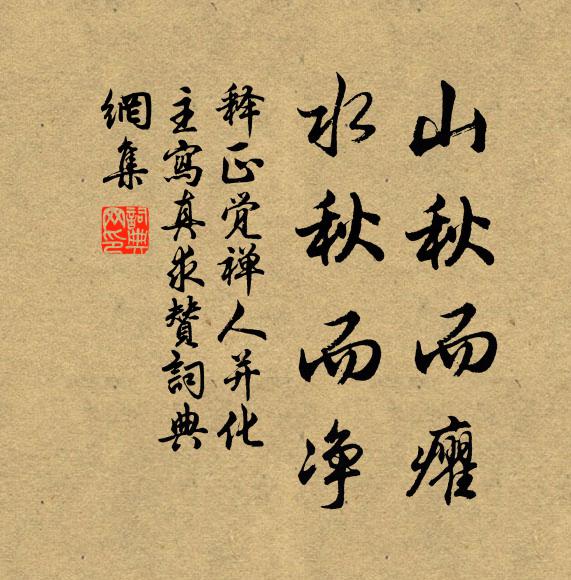 山秋而癯
水秋而净
释正觉禅人并化
主寫真求贊詞典
網集
詞典网印